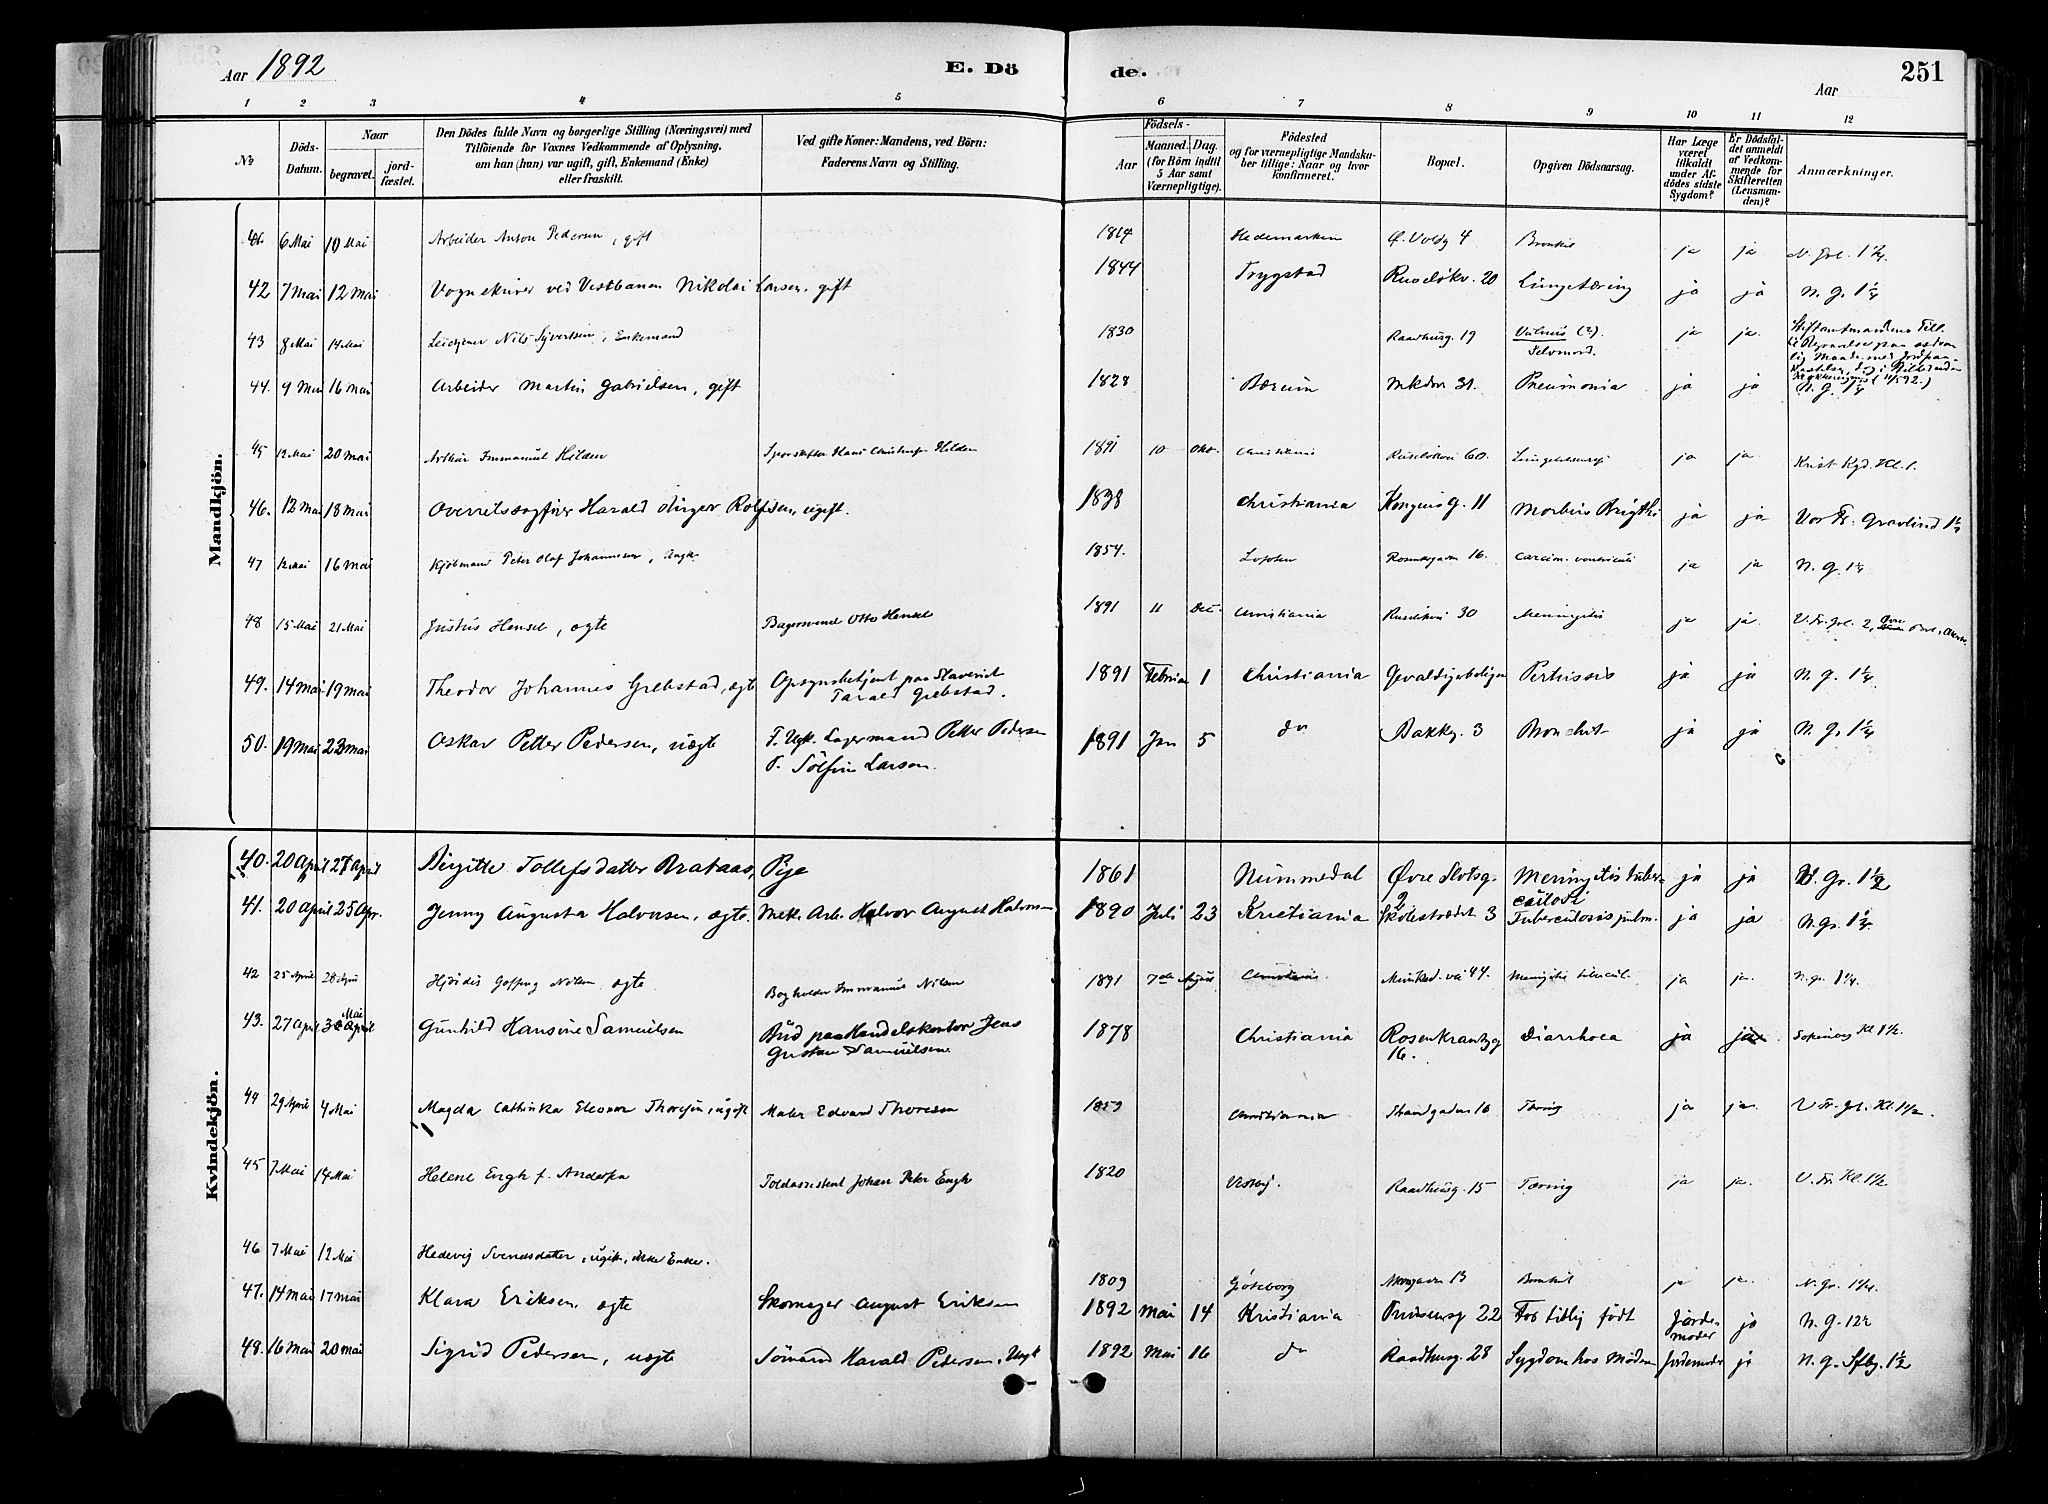 Aar 1892
E. Dö
de.
Aar
251
1 2 3 4 5 6 7 8 9 10 11 12
No
Döds-Datum.
Naar
begravet.
jordfæstet.
Den Dödes fulde Navn og borgerlige Stilling (Næringsvei) med
Tilföiende for Voxnes Vedkommende af Oplysning,
om han (hun) var ugift, gift, Enkemand (Enke)
eller fraskilt.
Ved gifte Koner: Mandens, ved Börn:
Faderens Navn og Stilling.
Födsels-
Aar
Maaned. Dag.
(for Börn indtil
5 Aar samt
Værnepligtige).
Födested
og for værnepligtige Mandsku-
ber tillige: Naar og hvor
konfirmeret.
Bopæl.
Opgiven Dödsaarsag.
Har Læge
været
tilkaldt
under Af-
dödes sidste
Sygdom?
Er Dödsfal-
det anmeldt
af Vedkom-
mende for
Skifteretten
(Lensman-
den)?
Anmærkninger.
Mandkjön.
41. 6 Mai 10 Mai Arbeider Anton Pedersen, gift 1814 Hedemarken Ø. Voldg 4 Bronkit ja ja
42 7 Mai 12 Mai Vognskriver ved Vestbanen Nikolai Larsen, gift 1844 Trygstad Ruseløkv. 20 Lungetæring ja ja N. G. 1 1/4
43 8 Mai 14 Mai Nils Syvertsen, Enkemand 1830 Raadhusg. 19 Vulnus (?). Selvmord. ja ja.
44. 9 Mai 16 mai Arbeider Martin Gabrielsen, gift 1828 Bærum Mkdv 31. Pneumonia ja ja N. G. 1 1/4
45 12 Mai 20 mai Arthur Immanuel Hilden Hans Christoph Hilden 1891 10 Okt. Christiania Ruseløkvei 60. ja ja Krist Kgd. Kl. 1.
46. 12 Mai 18 mai Overretssagfører Harald Birger Rolfsen, ugift. 1838 Christiania Kongens G. 11 Morbus Brigthi ja ja Vor Fr. Gravlund 1 1/2
47 12 Mai 16 mai Kjøbmand Peter Olaf Johannesen, Ungk 1854. Lofoten Rosenkgaden 16. carcim. ventriculi ja ja N. G. 1 1/4
48 15 Mai 21 Mai Justus Hensel, ægte Bagersvend Otto Hensel 1891 11 Dec. Christiania Ruseløkvei 30 Meningitis ja ja.
49. 14 mai 19 mai Theodor Johannes Grebstad, ægte Opsynsbetjent paa Slaveriet
Tarald Grebstad. 1891 Februar 1 Christiania Gevaldigerboligen Pertussis ja ja N. G. 1 1/4
50. 19 Mai 23 mai Oskar Petter Pedersen, uægte F. Ugk. Lagermand Petter Pedersen
P. Sölfine Larsen. 1891 Jan 5 do Bakkg. 3 Bronchit ja ja N. G. 1 1/4
Kvindekjön.
40. 20 April 27 April Birgitte Tollefsdatter Brataas, Pige 1861 Nummedal Øvre Slotsg. 2 Meningitis tuberculosi ja ja V. Gr. 1 1/2
41. 20 April 25 Apr. Jenny Augusta Halvorsen, ægte. Mek. Arb. Halvor August Halvorsen 1890 Juli 23 Kristiania Skolestrædet 3 Tuberculosis pulm. ja ja N. Gr. 1 1/4
42 25 April 28 April Hjördis Nilsen ægte Bogholder Immanuel Nilsen 1891 7de August Christiania. Munked. vei 44. Meningitis tubercul. ja ja. N. gr. 1 1/4.
43. 27 April 3 Mai Gunhild Hansine Samuelsen Bud paa Handelskontor Jens
Gustav Samuelsen. 1878 Christiania Rosenkrantzg 16. Diarrhoea ja ja Kl 1 1/2.
44 29 April 4 Mai Magda Cathinka Eleonor Thoresen, ugift Maler Edvard Thoresen 1859 Christiania Strandgaden 16 Tæring ja ja. V Fr. Gr. Kl. 1 1/2.
45 7 Mai 14 Mai Helene Engh f. Toldassistent Johan Peter Engh 1820 Vestby. Raadhusg. 15 Tæring ja ja. V. Fr. Kl. 1 1/2.
46 7 Mai 12 Mai Hedevig Svensdatter, ugift, Enke. 1809 Göteborg 13 Bronkit ja ja. N. Gr. 1 1/4.
47. 14 mai 17 mai Klara Eriksen, ægte Skomager August Eriksen 1892 Mai 14 Kristiania Prinsensg 22 For tidlig födt Jordemoder ja N. G.
48. 16 Mai 20 mai Sigrid Pedersen, uægte Sömand Harald Pedersen, Ungk 1892 Mai 16 do Raadhusg. 28 Sygdom hos Moderen Jordemoder ja N. G. Sfbg. 1 1/2